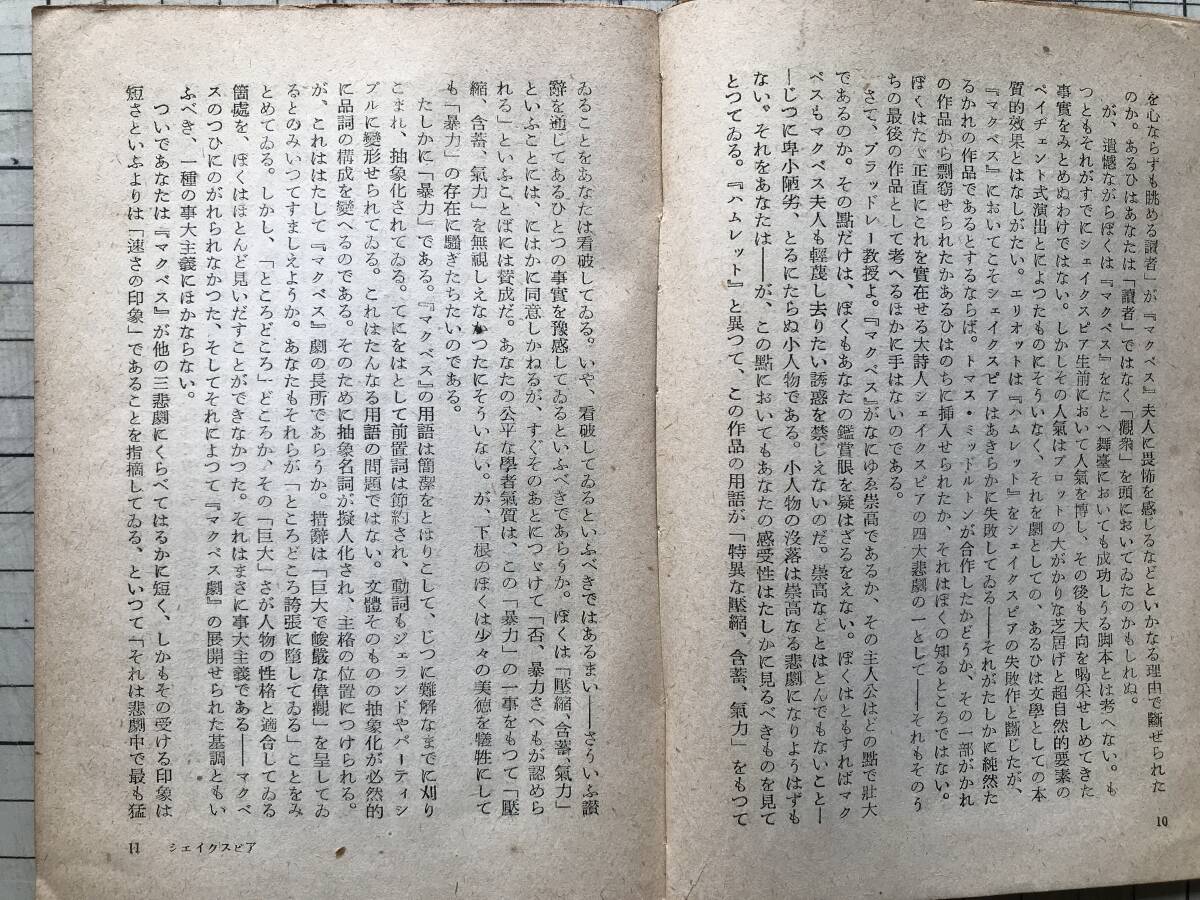 を心ならずも眺める讀者」が『マクベス』夫人に畏怖を感じるなどといかなる理由で斷ぜられた
のか。あるひはあなたは「讀者」ではなく「觀衆」を頭においてゐたのかもしれぬ。
が、遺憾ながらぼくは『マクベス』をたとへ舞臺においても成功しうる脚本とは考へない。も
つともそれがすでにシェイクスピア生前において人氣を博し、その後も大向を喝采せしめてきた
事實をみとめぬわけではない。しかしその人氣はプロットの大がかりな芝居げと超自然的要素の
ペイヂェント式演出とによつたものにそういなく、それを劇としての、あるひは文學としての本
質的效果とはなしがたい。エリオットは『ハムレット』をシェイクスピアの失敗作と斷じたが、
『マクベス』においてこそシェイクスピアはあきらかに失敗してゐる――それがたしかに純然た
るかれの作品であるとするならば。トマス・ミッドルトンが合作したかどうか、その一部がかれ
の作品から剽窃せられたかあるひはのちに挿入せられたか、それはぼくの知るところではない。
ぼくはたゞ正直にこれを實在せる大詩人シェイクスピアの四大悲劇の一として――それもそのう
ちの最後の作品として考へるほかに手はないのである。
さて、ブラッドレー教授よ。『マクベス』がなにゆゑ崇高であるか、その主人公はどの點で壯大
であるのか。その點だけは、ぼくもあなたの鑑賞眼を疑はざるをえない。ぼくはともすればマク
ベスもマクベス夫人も輕蔑し去りたい誘惑を禁じえないのだ。崇高などとはとんでもないこと―
―じつに卑小陋劣、とるにたらぬ小人物である。小人物の沒落は崇高なる悲劇になりようはずも
ない。それをあなたは――が、この點においてもあなたの感受性はたしかに見るべきものを見て
とつてゐる。『ハムレット』と異つて、この作品の用語が「特異な壓縮、含蓄、氣力」をもつて
10
ゐることをあなたは看破してゐる。いや、看破してゐるといふべきではあるまい――さういふ讚
辭を通してあるひとつの事實を豫感してゐるといふべきであらうか。ぼくは「壓縮、含蓄、氣力」
といふことには、にはかに同意しかねるが、すぐそのあとにつゞけて「否、暴力さへもが認めら
れる」といふことばには贊成だ。あなたの公平な學者氣質は、この「暴力」の一事をもつて「壓
縮、含蓄、氣力」を無視しえなかつたにそういない。が、下根のぼくは少々の美德を犠牲にして
も「暴力」の存在に騒ぎたちたいのである。
たしかに「暴力」である。『マクベス』の用語は簡潔をとほりこして、じつに難解なまでに刈り
こまれ、抽象化されてゐる。てにをはとして前置詞は節約され、動詞もジェランドやパーティシ
プルに變形せられてゐる。これはたんなる用語の問題ではない。文體そのものの抽象化が必然的
に品詞の構成を變へるのである。そのために抽象名詞が擬人化され、主格の位置につけられる。
が、これははたして『マクベス』劇の長所であらうか。措辭は「巨大で峻嚴な偉觀」を呈してゐ
るとのみいつてすましえようか。あなたもそれらが「ところどころ誇張に墮してゐる」ことをみ
とめてゐる。しかし、「ところどころ」どころか、その「巨大」さが人物の性格と適合してゐる
箇處を、ぼくはほとんど見いだすことができなかつた。それはまさに事大主義である――マクベ
スのつひにのがれられなかつた、そしてそれによつて『マクベス劇』の展開せられた基調ともい
ふべき、一種の事大主義にほかならない。
ついであなたは『マクベス』が他の三悲劇にくらべてはるかに短く、しかもその受ける印象は
短さといふよりは「速さの印象」であることを指摘してゐる、といつて「それは悲劇中で最も猛
11 シェイクスピア